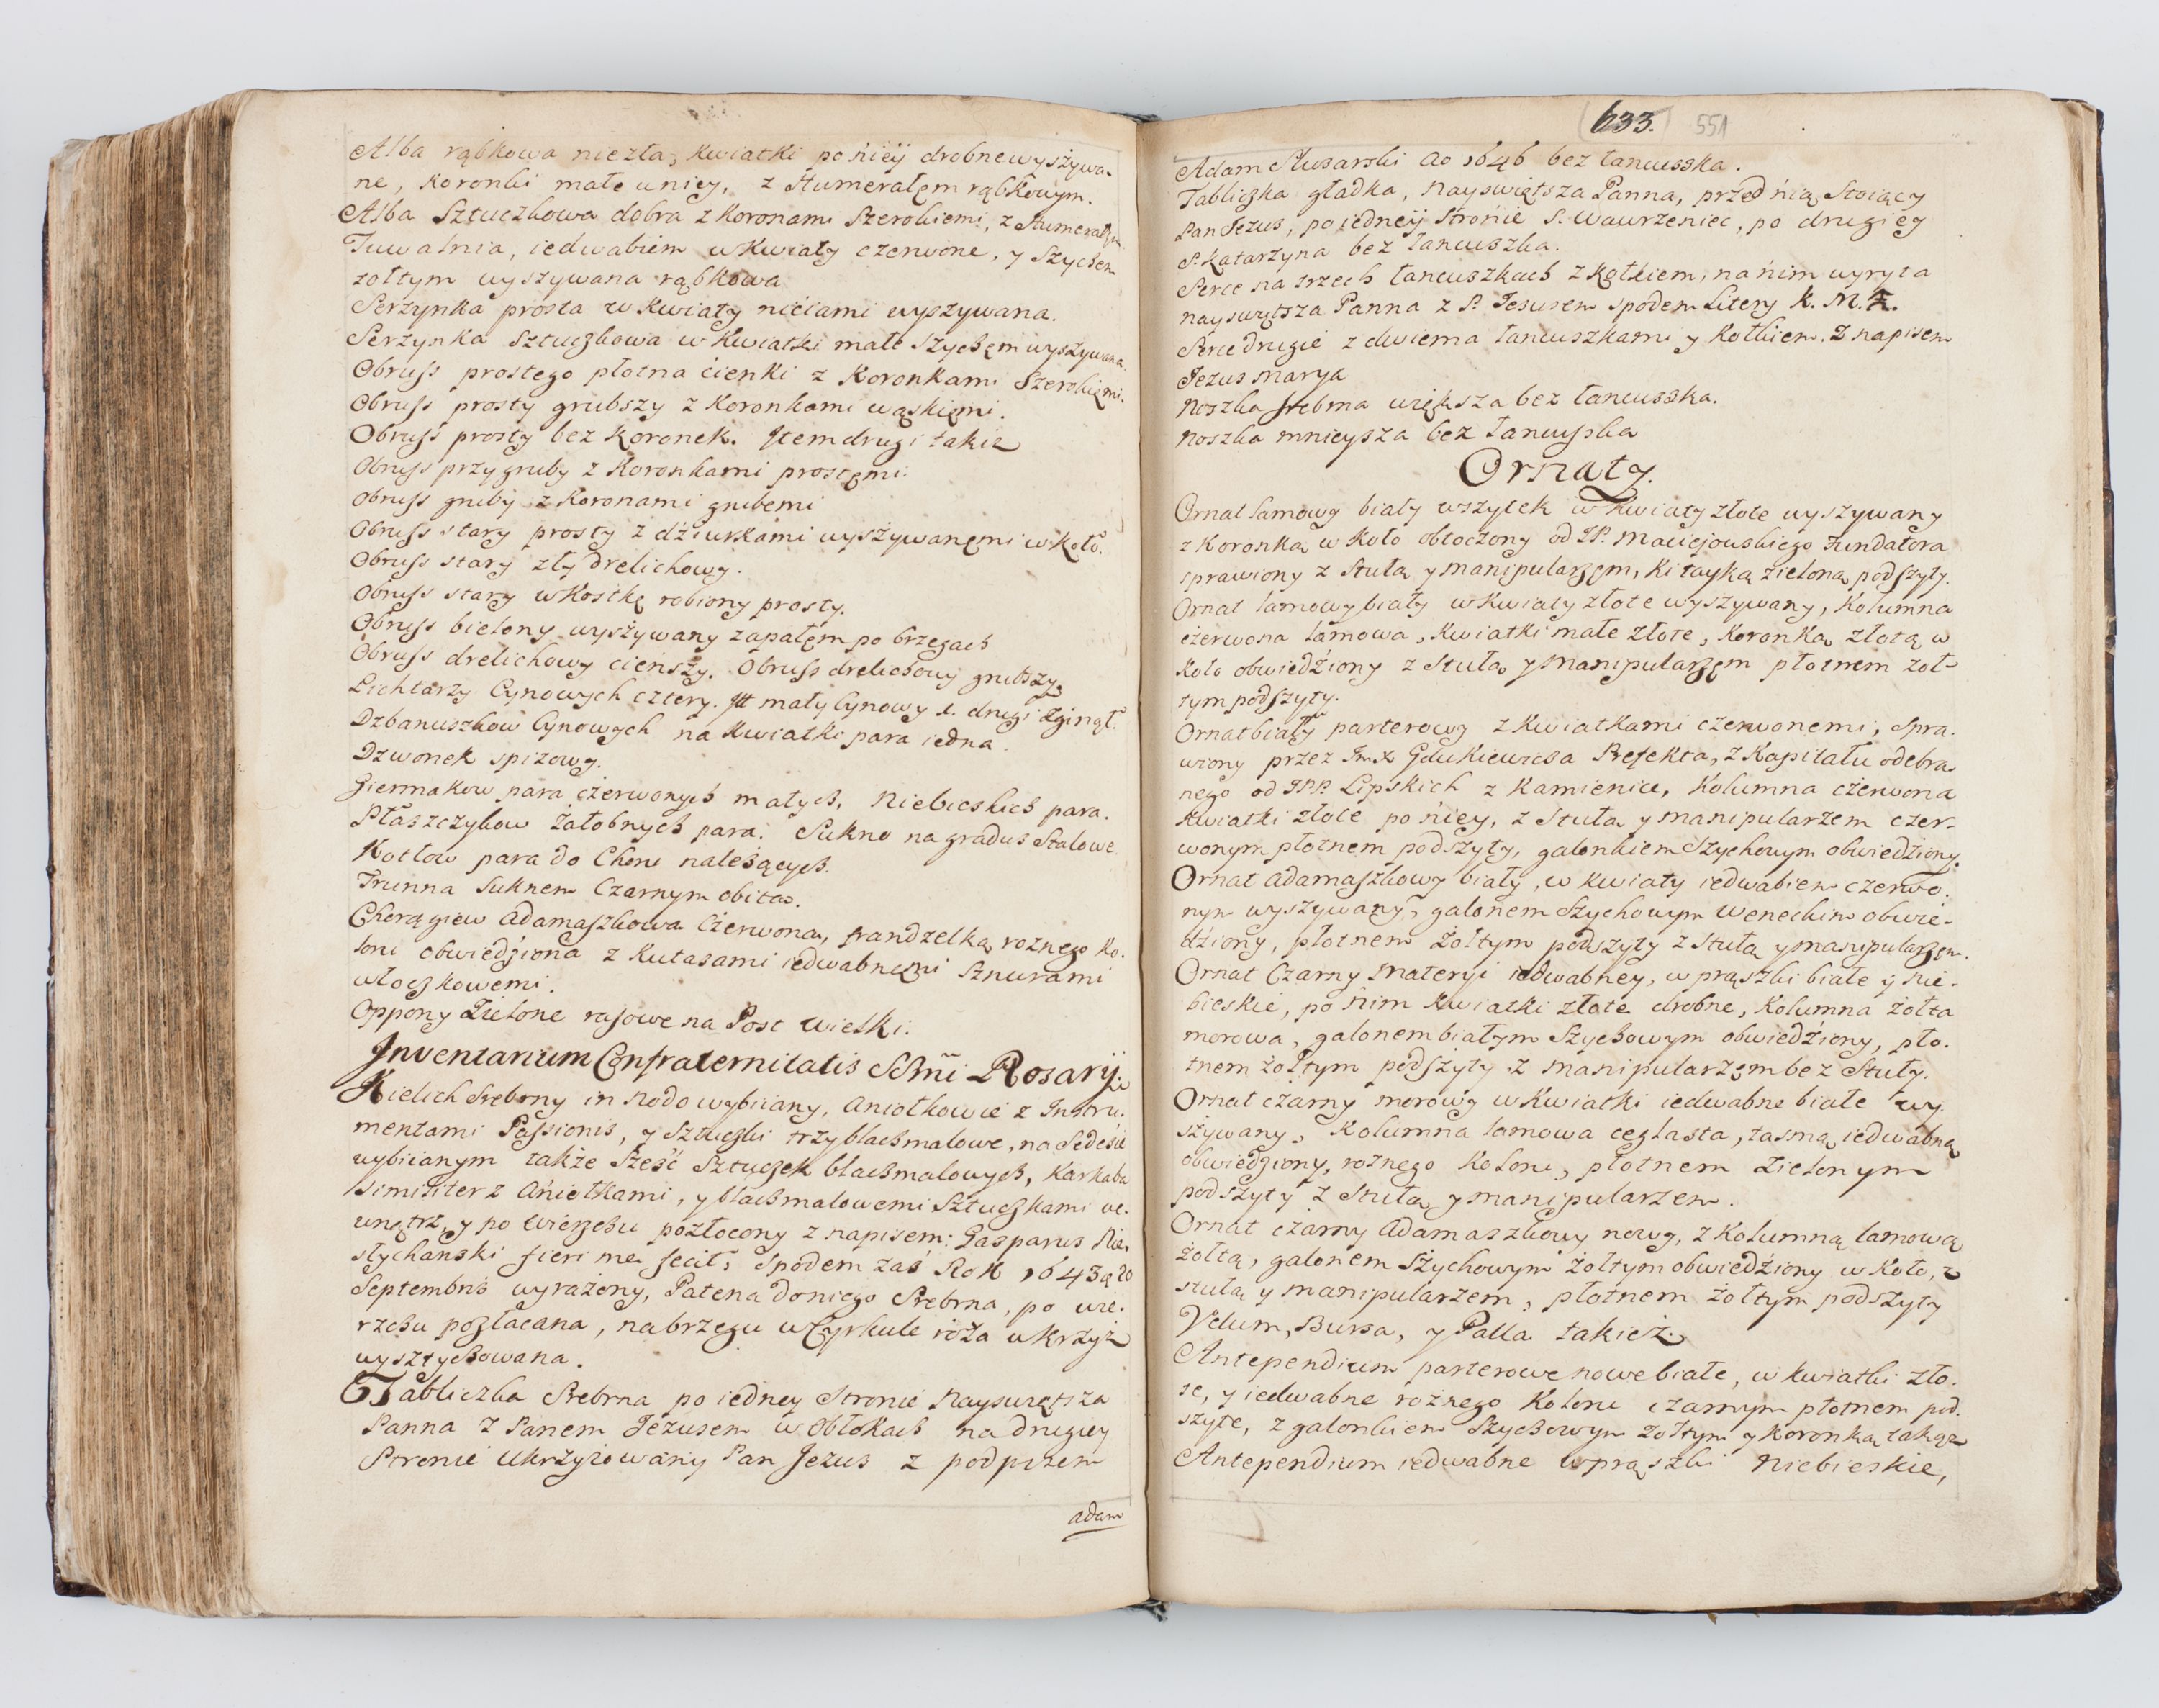 Alba rąbkowa niezła, kwiatki po niey drobne wyszywa-
ne, Koronki małe u niey, z Humerałem rąbkowym.
Alba Sztuczkowa dobra z Koronami Szerokiemi, z Humerałem
Tuwalnia, iedwabiem w Kwiaty czerwone, y Szychem
zołtym wyszywana rąbkowa
Serzynka prosta w Kwiaty nićiami wyszywana.
Serzynka Sztuczkowa w Kwiatki małe Szychęm wyszywana.
Obruss prostego płotna ćienki z Koronkami Szerokięmi.
Obruss prosty grubszy z Koronkami wąskięmi.
Obruss prosty bez Koronek. Item drugi takiz
Obruss przygruby z Koronkami prostęmi.
Obruss gruby z Koronami grubemi
Obruss stary prosty z dźiurkami wyszywanęmi w koło.
Obruss stary zły drelichowy.
Obruss stary w Kostkę robiony prosty.
Obruss bielony wyszywany zapałęm po brzegach
Obruss drelichowy cieńszy. Obruss drelichowy grubszy
Lichtarzy Cynowych cztery. It mały Cynowy 1. drugi zginął.
Dzbanuszkow Cynowych na Kwiatki para iedna.
Dzwonek spizowy.
Giermakow para czerwonych małych, Niebieskich para.
Płaszczykow Załobnych para. Sukno na gradus Stalowe
Kotłow para do Choru nalezących.
Trunna Suknem Czarnym obita.
Chorągiew Adamaszkowa Czerwona, frandzelką roznego Ko-
loru obwiedźiona z Kutasami iedwabnęmi Sznurami
włoczkowemi.
Oppony Zielone rasowe na Post wielki.
Inventarium Confraternitatis SSmi Rosarij.
Kielich Srebrny in Nodo wybiiany, Aniołkowie z Instru-
mentami Passionis, y Sztuczki trzy blachmalowe, na Sedeśie
wybiianym także Sześć Sztuczek blachmalowych, Karkabu
simititer z Aniełkami, y blachmalowemi Sztuczkami we-
wnątrz, y po wierzchu pozłocony z napisem: Gasparus Nie-
słychanski fieri me fecit, Spodem zaś Rok 1643 a 20
Septembris wyrażony, Patena do niego Srebrna, po wie-
rzchu pozłacana, na brzegu w Cyrkule róża w Krzyż
wysztychowana.
Tabliczka Srebrna po iedney Stronie Nayswiętsza
Panna z Panem Jezusem w Obłokach na drugiey
Stronie Ukrzyżowany Pan Jezus z podpisem
adam
633. 551
Adam Slusarski Ao 1646 bez łancuszka.
Tabliczka gładka, Nayswiętsza Panna, przed nią Stoiący
Pan Jezus, po iedney Stronie S. Wawrzeniec, po drugiey
S. Katarzyna bez łancuszka.
Serce na trzech łancuszkach z Kołkiem, na nim wyryta
nayswiętsza Panna z P. Jesusem spodem Litery K. M. Z.
Serce drugie z dwiema łancuszkami y Kołkiem. Z napisem
Jezus Marya
Noszka srebrna większa bez łancuszka.
Noszka mnieysza bez łancuszka
Ornaty.
Ornat lamowy biały wszytek w Kwiaty złote wyszywany
z Koronką w Koło obtoczony od JP. Macieiowskiego Fundatora
sprawiony z Stułą y manipularzęm, Kitayką zieloną podszyty.
Ornat lamowy biały w Kwiaty złote wyszywany, Kolumna
czerwona lamowa, Kwiatki małe złote, Koronką złotą w
Koło obwiedźiony z Stułą y Manipularzęm płotnem zoł-
tym podszyty.
Ornat biały parterowy z Kwiatkami czerwonemi, Spra-
wiony przez Imx Gdukiewicsa Prefekta, z Kapitału odebra-
nego od JPP. Lipskich z Kamienice, Kolumna czerwona
Kwiatki złote po niey, z Stułą y manipularzem czer-
wonym płotnem podszyty, galonkiem Szychowym obwiedziony.
Ornat Adamaszkowy biały, w Kwiaty iedwabiem czerwo-
nym wyszywany, galonem Szychowym Weneckim obwie-
dźiony, płotnem Żołtym podszyty z Stułą y manipularzęm.
Ornat Czarny Materyi iedwabney, w prązki białe y Nie-
bieskie, po nim Kwiatki złote drobne, Kolumna żołta
morowa, galonem białym Szychowym obwiedźiony, pło-
tnem żołtym podszyty z Manipularzem bez Stuły.
Ornat czarny morowy w Kwiatki iedwabne białe wy-
szywany, Kolumna lamowa ceglasta, tasmą iedwabną
obwiedziony, roznego Koloru, płotnem Zielonym
podszyty z Stułą y manipularzem.
Ornat czarny Adamaszkowy nowy, z Kolumną lamową
żołtą, galonem Szychowym Żołtym obwiedźiony w Koło, z
stułą y Manipularzem, płotnem żołtym podszyty
Velum, Bursa, y Palla takież.
Antependium parterowe nowe białe, w kwiatki zło-
te, y iedwabne rożnego Koloru czarnym płotnem pod-
szyte, z galonkiem Szychowym żołtym y Koronką takąz
Antependium iedwabne w prązki Niebieskie,